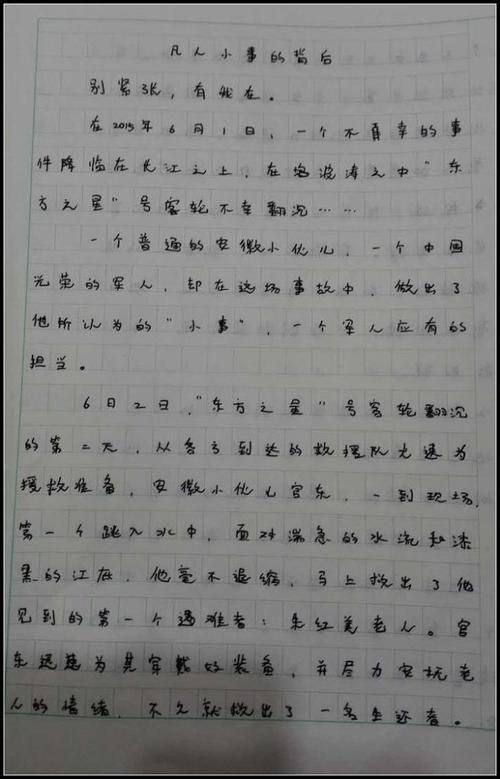 凡人小事的背后
别紧张，有我在。
在2015年6月1日，一个不幸的事
件降临在长江之上，在的波涛之中“东
方之星”号客轮不幸翻沉……
一个普通的安徽小伙儿，一个中国
光荣的军人，却在这场事故中，做出了
他所认为的“小事”，一个军人应有的
担当。
6月2日，“东方之星”号客轮翻沉
的第二天，从各方到达的救援队火速为
援救准备，安徽小伙儿官东，一到现场，
第一个跳入水中，面对湍急的水流和漆
黑的江底，他毫不退缩，马上救出了他
见到的第一个遇难者：朱红美老人。官
东迅速为其穿戴好装备，并尽力安抚老
人的情绪，不久就救出了一名生还者。